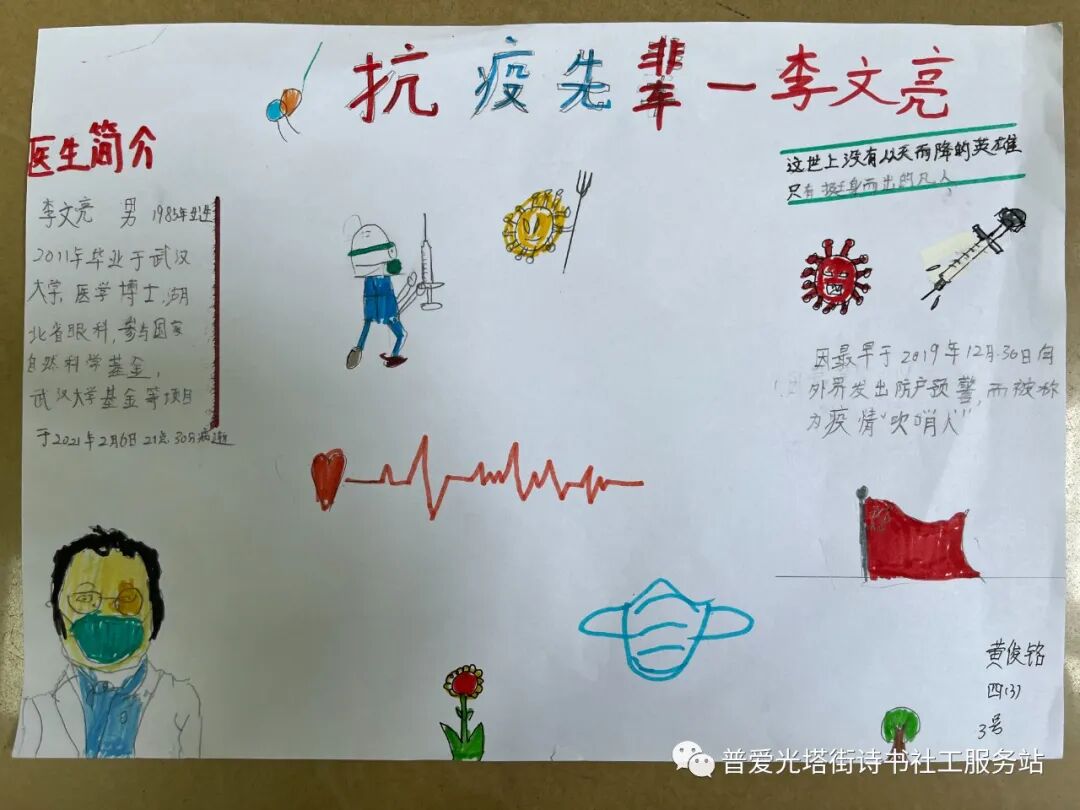 抗疫先辈一李文亮
医生简介
李文亮 男 1985年出生
2011年毕业于武汉
大学,医学博士,湖
北省眼科,参与国家
自然科学基金,
武汉大学基金等项目
于2021年2月6日21点30分病逝
这世上没有从天而降的英雄
只有挺身而出的凡人
因最早于2019年12月30日向
外界发出防护预警,而被称
为疫情"吹哨人"
黄俊铭
四(3)
3号
普爱光塔街诗书社工服务站